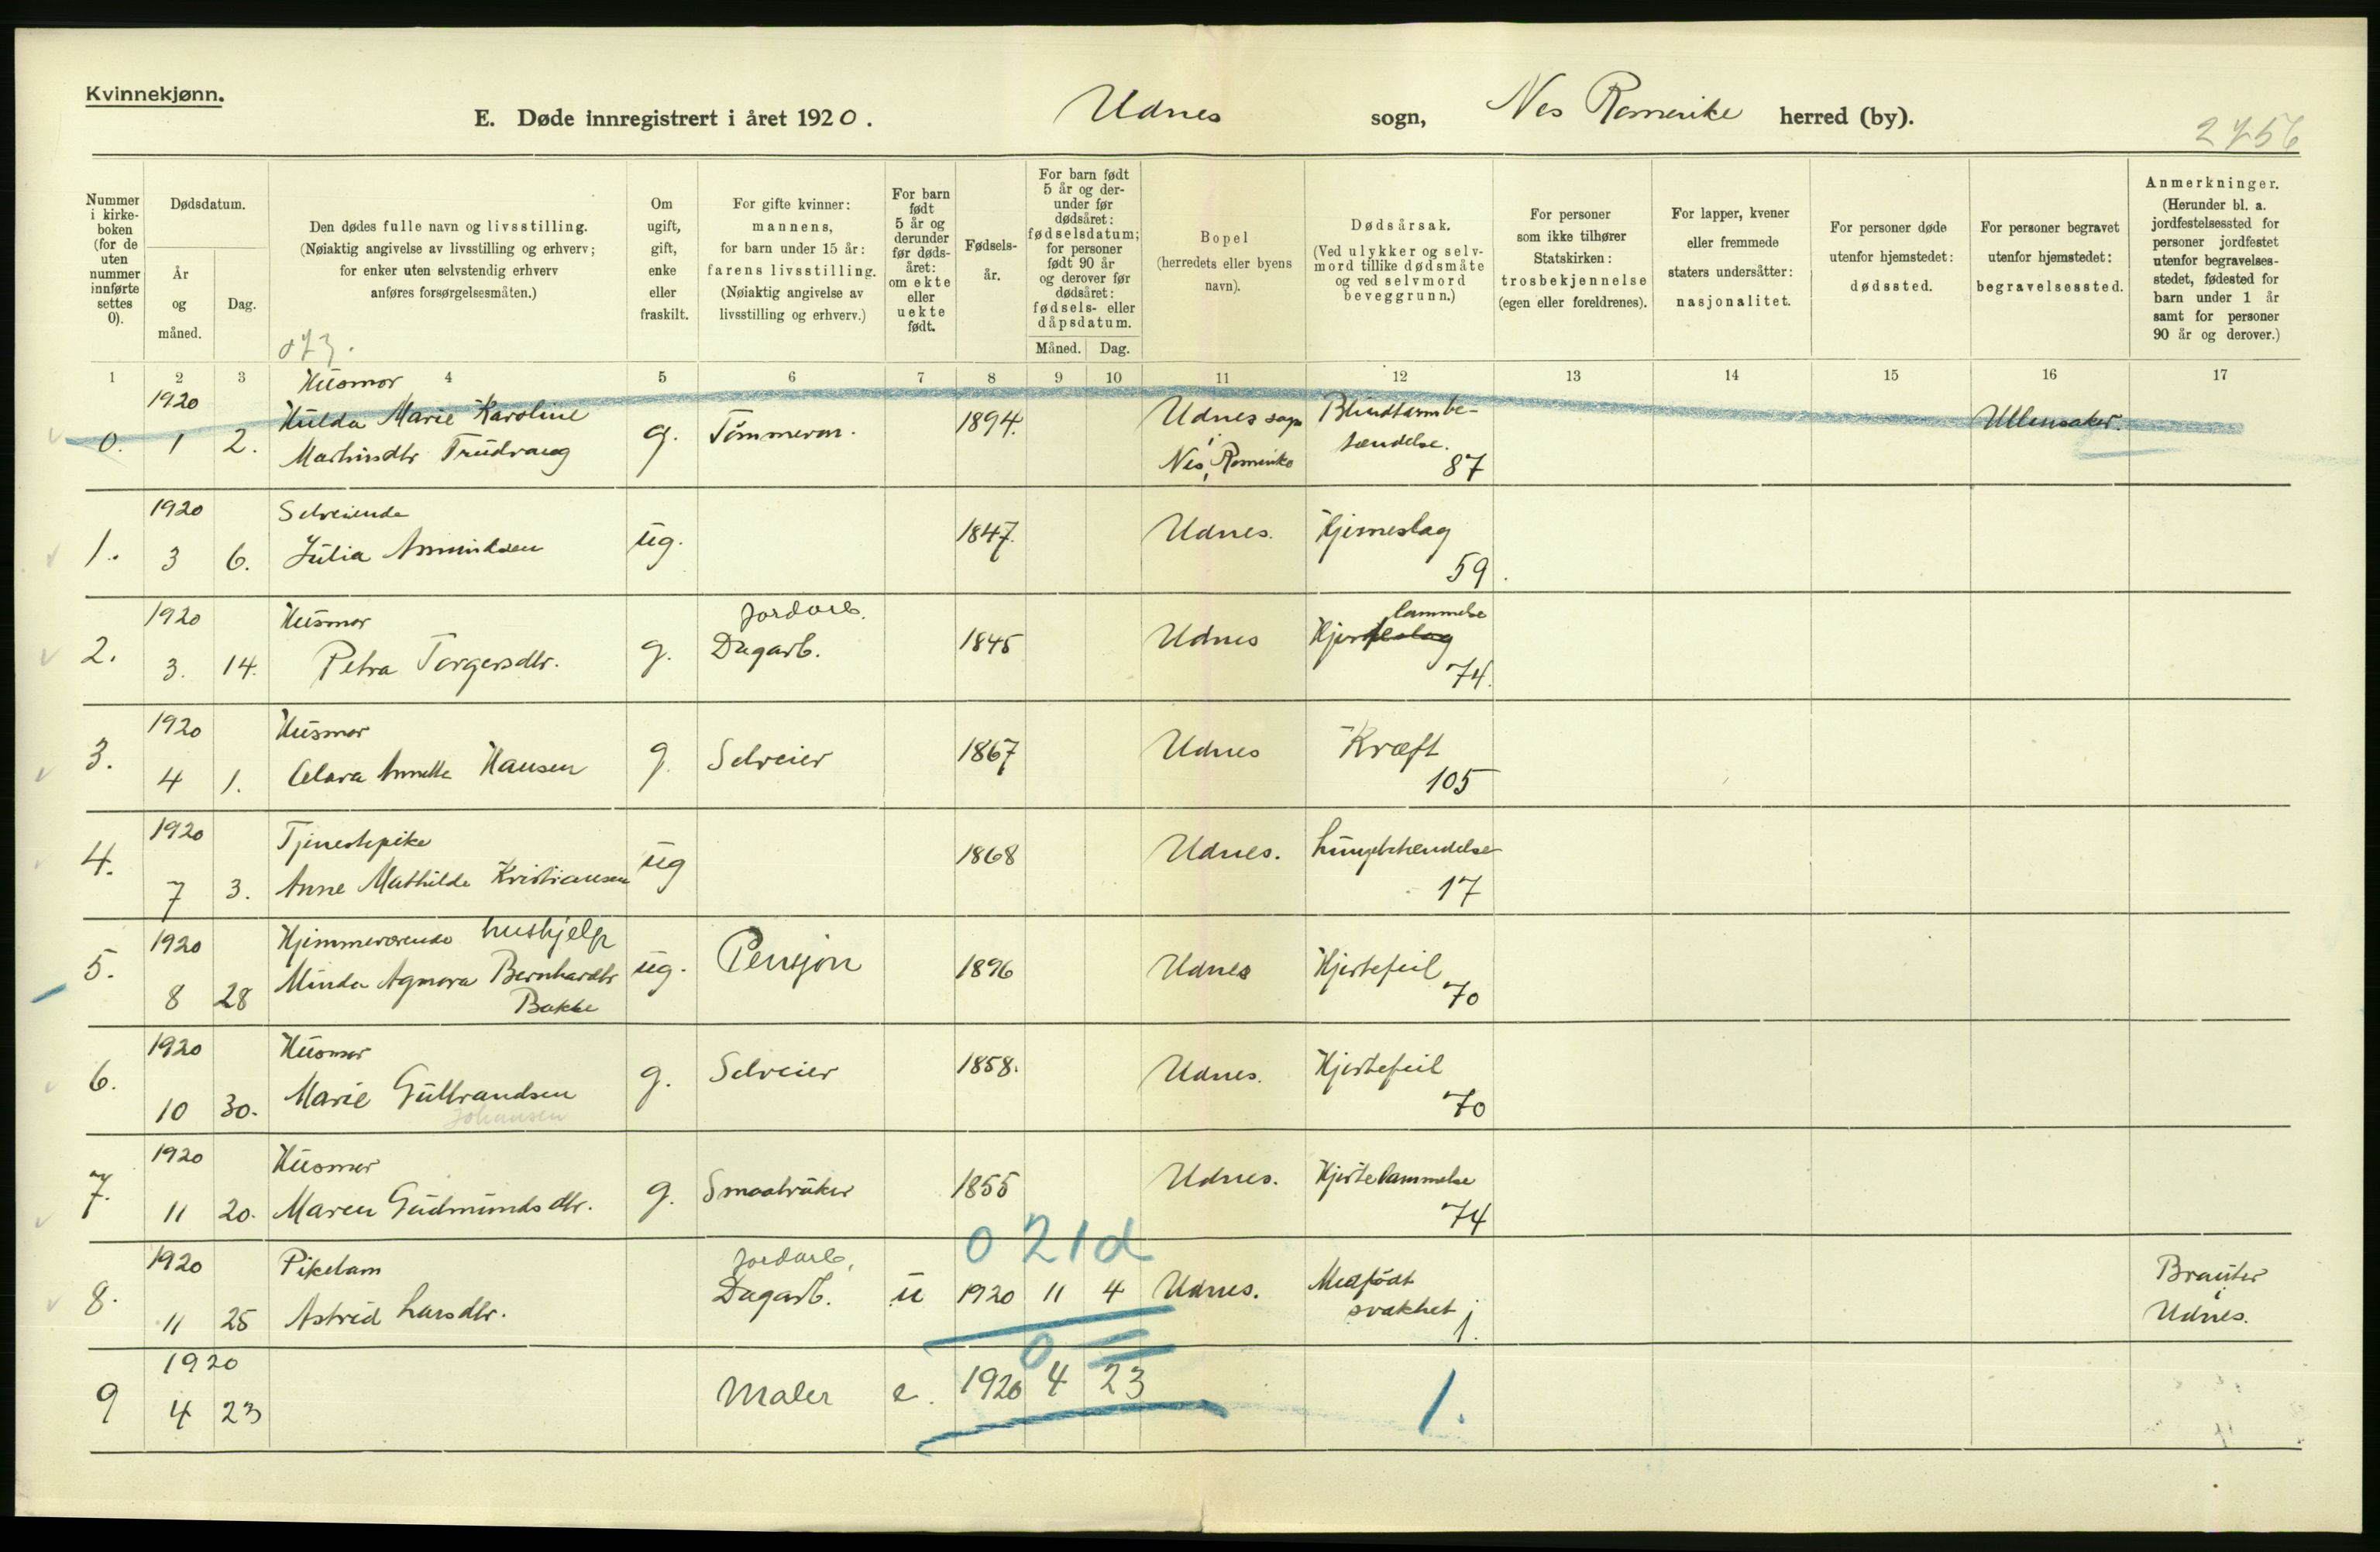 Kvinnekjønn.
E. Døde innregistrert i året 1920. Udnes sogn, Nes Romerike herred (by).
2756
Nummer i kirke-boken (for de uten nummer innførte settes 0).
Dødsdatum.
År og måned.
Dag.
Den dødes fulle navn og livsstilling.
(Nøiaktig angivelse av livsstilling og erhverv;
for enker uten selvstendig erhverv
anføres forsørgelsesmåten.)
Om
ugift,
gift,
enke
eller
fraskilt.
For gifte kvinner:
mannens,
for barn under 15 år:
farens livsstilling.
(Nøiaktig angivelse av
livsstilling og erhverv.)
For barn
født
5 år og
derunder
før døds-
året:
om ekte
eller
uekte
født.
Fødsels-
år.
For barn født
5 år og der-
under før
dødsåret:
fødselsdatum;
for personer
født 90 år
og derover før
dødsåret:
fødsels- eller
dåpsdatum.
Måned. Dag.
Bopel
(herredets eller byens
navn).
Dødsårsak.
(Ved ulykker og selv-
mord tillike dødsmåte
og ved selvmord
beveggrunn.)
For personer
som ikke tilhører
Statskirken:
trosbekjennelse
(egen eller foreldrenes).
For lapper, kvener
eller fremmede
staters undersåtter:
nasjonalitet.
For personer døde
utenfor hjemstedet:
dødssted.
For personer begravet
utenfor hjemstedet:
begravelsessted.
Anmerkninger.
(Herunder bl. a.
jordfestelsessted for
personer jordfestet
utenfor begravelses-
stedet, fødested for
barn under 1 år
samt for personer
90 år og derover.)
073.
1 2 3 4 5 6 7 8 9 10 11 12 13 14 15 16 17
1920 Husmor
0. 1 2. Hulda Marie Karoline g. Tømmerm. 1894. Udnes sogn Blindtarmbe- Ullensaker.
Martinsdtr Trudvang i Nes, Romerike tændelse. 87
1920 Selveiende
1. 3 6. Julia Amundsen ug. 1847. Udnes. Hjerneslag
59.
1920 Husmor Jordarb. lammelse
2. 3. 14. Petra Torgersdtr. g. Dagarb. 1845 Udnes Hjerteslag
74.
1920 Husmor
3. 4 1. Clara Annette Hansen g. Selveier 1867 Udnes Kræft
105
1920 Tjenestepike
4. 7 3. Anne Mathilde Kristiansen ug 1868 Udnes. Lungebetændelse
17
1920 Hjemmeværende hushjelp
5. 8 28 Minda Agmora Bernhardtr ug. Pensjon 1896 Udnes Hjertefeil
Bakke 70
1920 Husmor
6. 10 30. Marie Gulbrandsen g. Selveier 1858. Udnes. Hjertefeil
Johansen 70
1920 Husmor
7. 11 20. Maren Gudmundsdtr. g. Smaabruker 1855 Udnes. Hjertelammelse
74
0 21 d
1920 Pikebarn Jordarb.
8. 11 25 Astrid Larsdtr. Dagarb. u 1920 11 4 Udnes. Medfødt svakhet 1. Brauter i Udnes.
0
1920
9 4 23 Maler e. 1920 4 23 1.